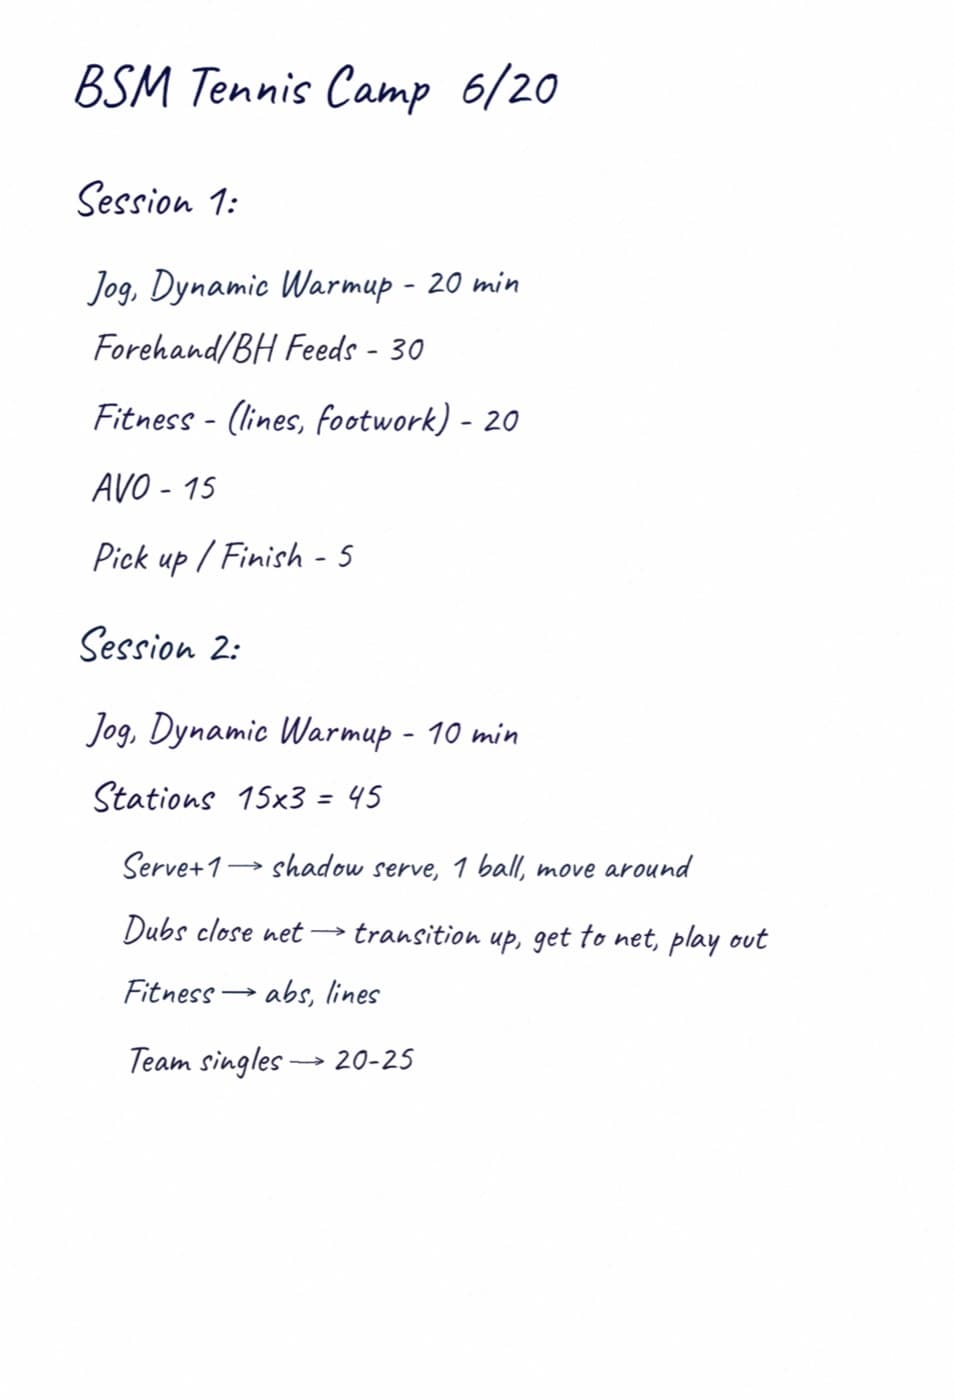 BSM Tennis Camp 6/20
Session 1:
Jog, Dynamic Warmup - 20 min
Forehand/BH Feeds - 30
Fitness - (lines, footwork) - 20
AVO - 15
Pick up / Finish - 5
Session 2:
Jog, Dynamic Warmup - 10 min
Stations 15x3 = 45
Serve+1 → shadow serve, 1 ball, move around
Dubs close net → transition up, get to net, play out
Fitness → abs, lines
Team singles → 20-25